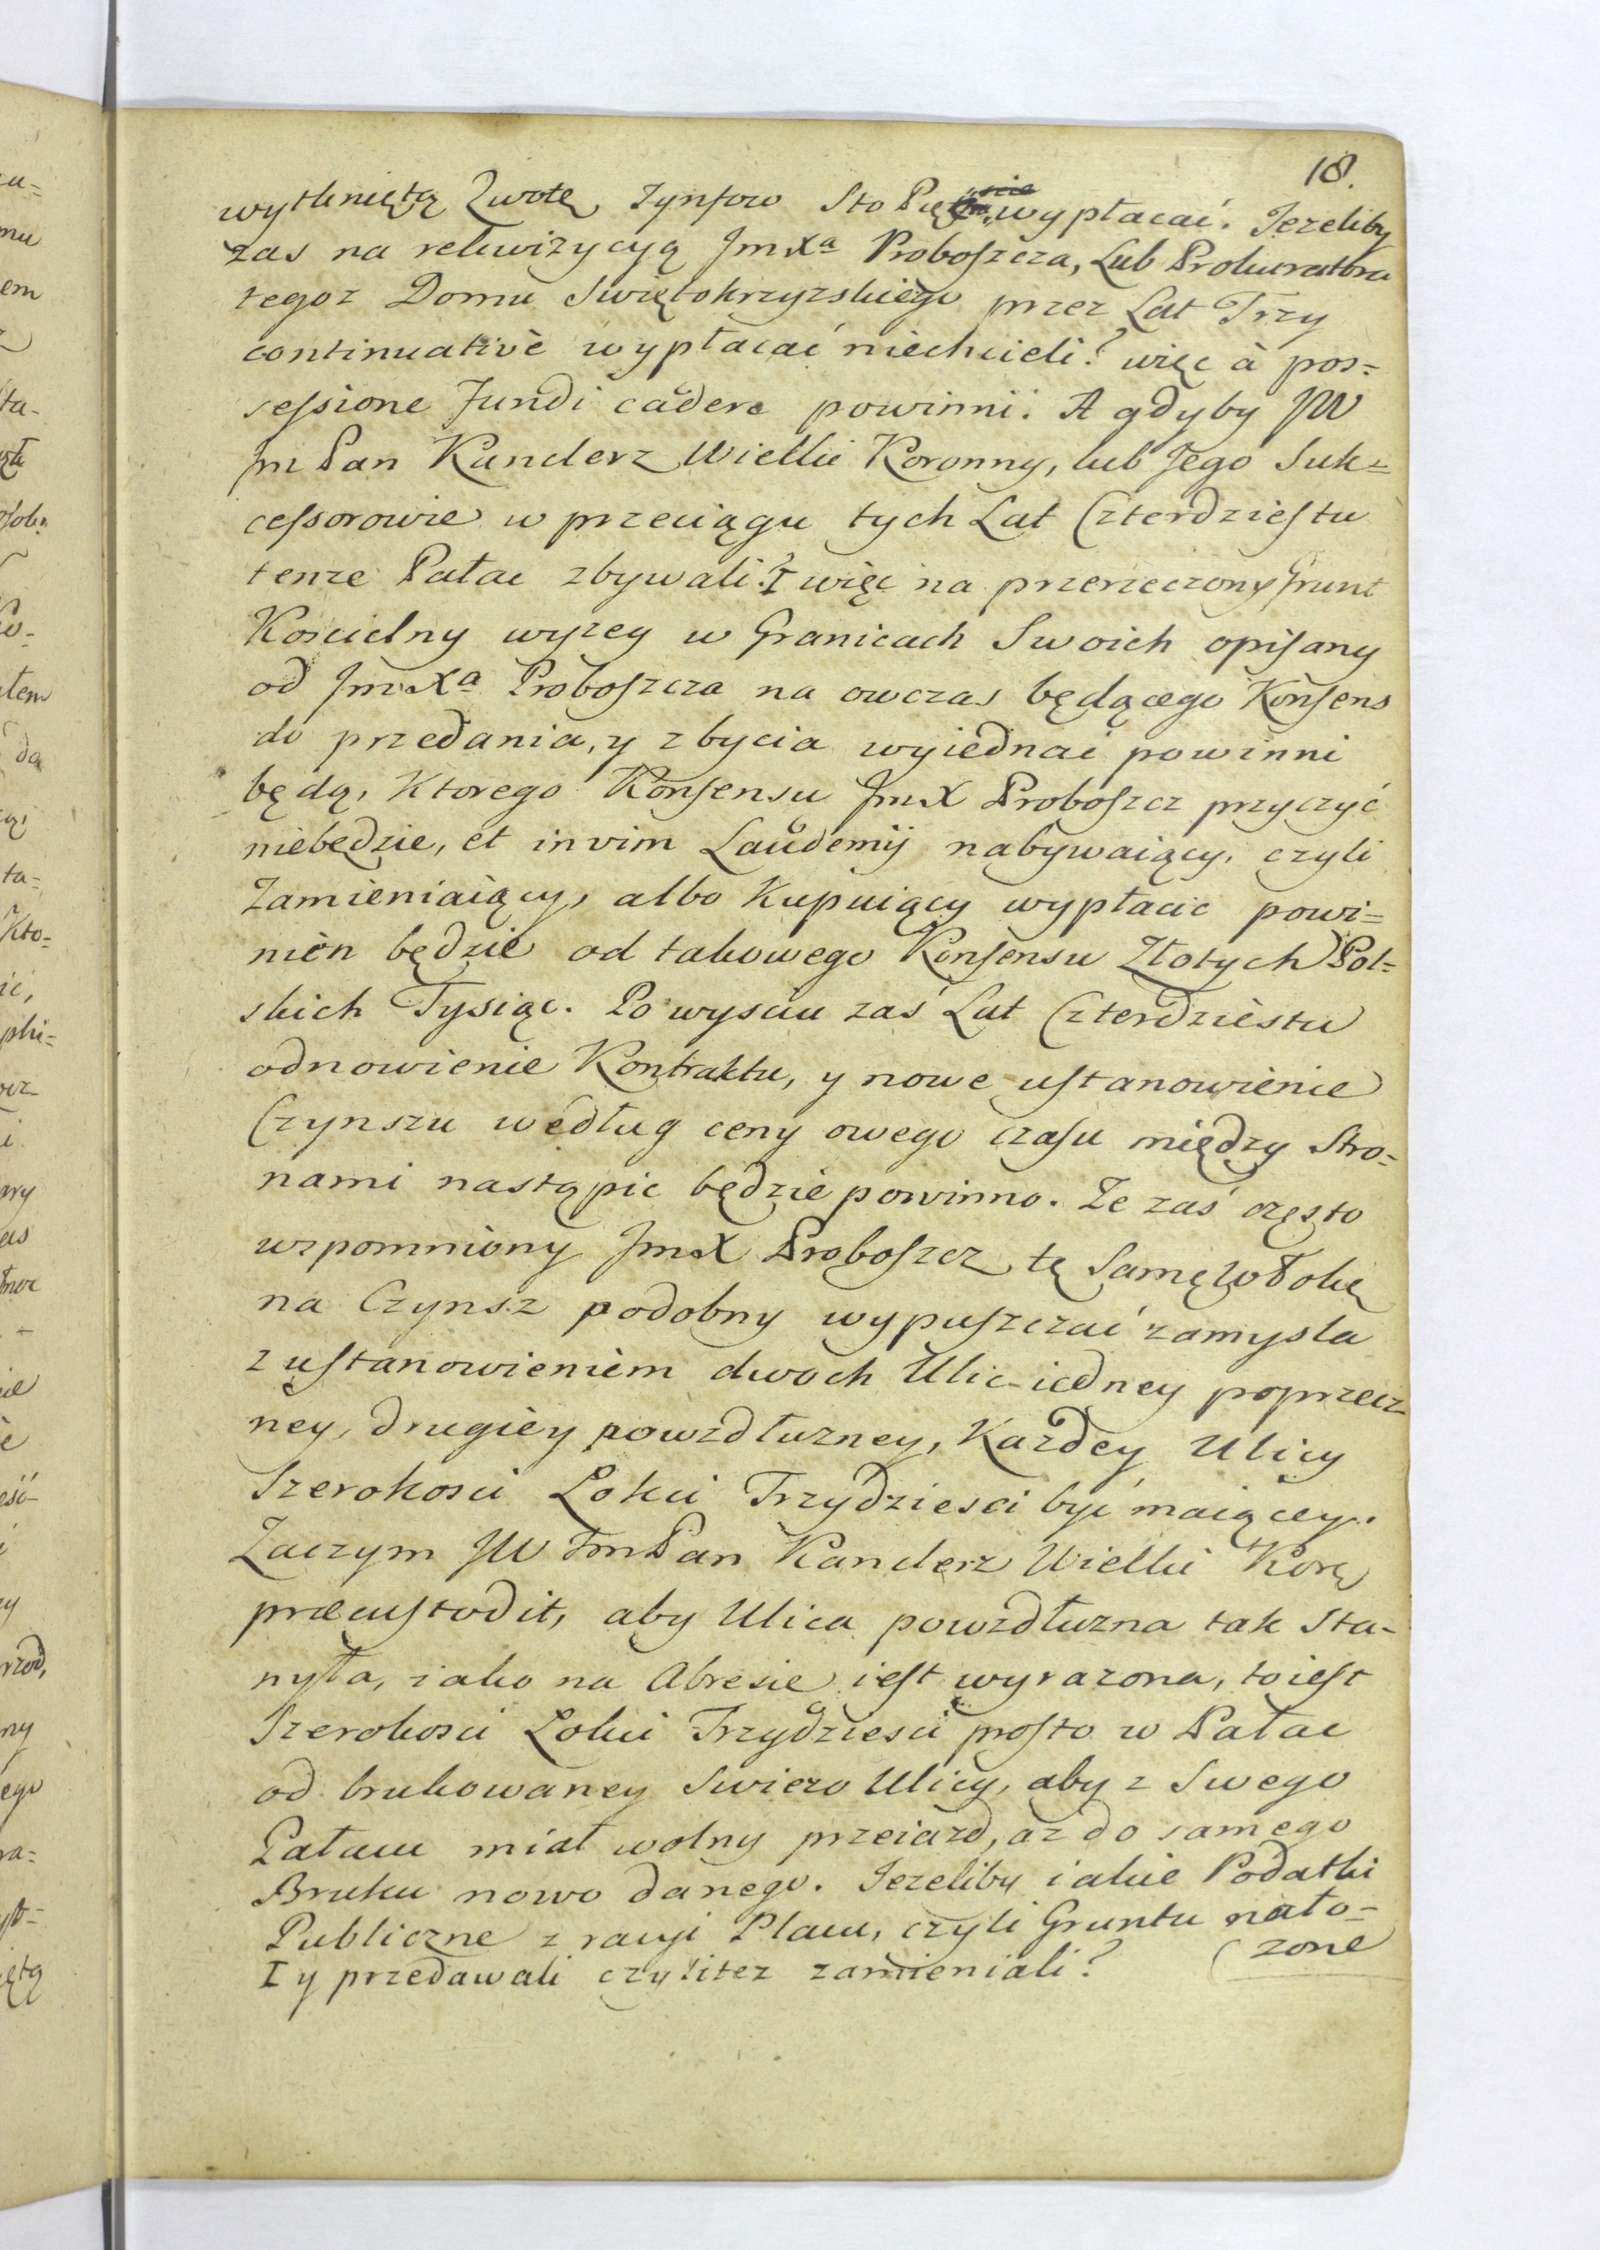 18.
wytkniętą Kwotę Tynfow Sto Pięć wypłacać. Jezeliby
zas na rekwizycyą JmXa Proboszcza, Lub Prokuratora
tegoz Domu Swiętokrzyzskiego przez Lat Trzy
continuativè wypłacać niechcieli? więc à pos=
sessione Fundi cadere powinni. A gdyby JW
Jm Pan Kanclerz Wielki Koronny, lub Jego Suk=
cessorowie w przeciągu tych Lat Czterdziestu
tenze Pałac zbywali? I więc na przerzeczony Grunt
Koscielny wyzey w Granicach Swoich opisany
od JmXa Proboszcza na owczas będącego Konsens
do przedania, y zbycia wyiednać powinni
będą, Ktorego Konsensu JmX Proboszcz przyczyć
niebędzie, et in vim Laudemij nabywaiący, czyli
Zamieniaiący, albo Kupuiący wypłacić powi=
nien będzie od takowego Konsensu Złotych Pol=
skich Tysiąc. Po wysciu zaś Lat Czterdziestu
odnowienie Kontraktu, y nowe ustanowienie
Czynszu według ceny owego czasu między Stro=
nami nastąpic będzie powinno. Ze zaś często
wzpomniony JmX Proboszcz tę Samę Włokę
na Czynsz podobny wypuszczać zamysla
z ustanowieniem dwoch Ulic iedney poprzecz=
ney, drugiey powzdłuzney, Kazdey Ulicy
Szerokosci Lokci Trzydziesci być maiącey.
Zaczym JW JmPan Kanclerz Wielki Kor
præcustodit, aby Ulica powzdłuzna tak Sta=
nyła, iako na Abresie iest wyrazona, toiest
Szerokosci Lokci Trzydziesci prosto w Pałac
od brukowaney Swiezo Ulicy, aby z Swego
Pałacu miał wolny przeiazd, az do samego
Bruku nowo danego. Jezeliby iakie Podatki
Publiczne z racyi Placu, czyli Gruntu nało=
zone
I y przedawali czylitez zamieniali?